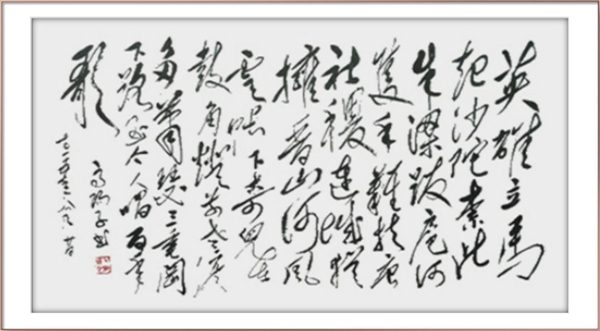 英雄立馬
起沙陀奈此
朱梁跋扈何
隻手難扶唐
社稷連城猶
擁晉山河風
雲帳下奇兒在
鼓角燈前老淚
多蕭瑟三垂岡
下路至今人唱百年
歌